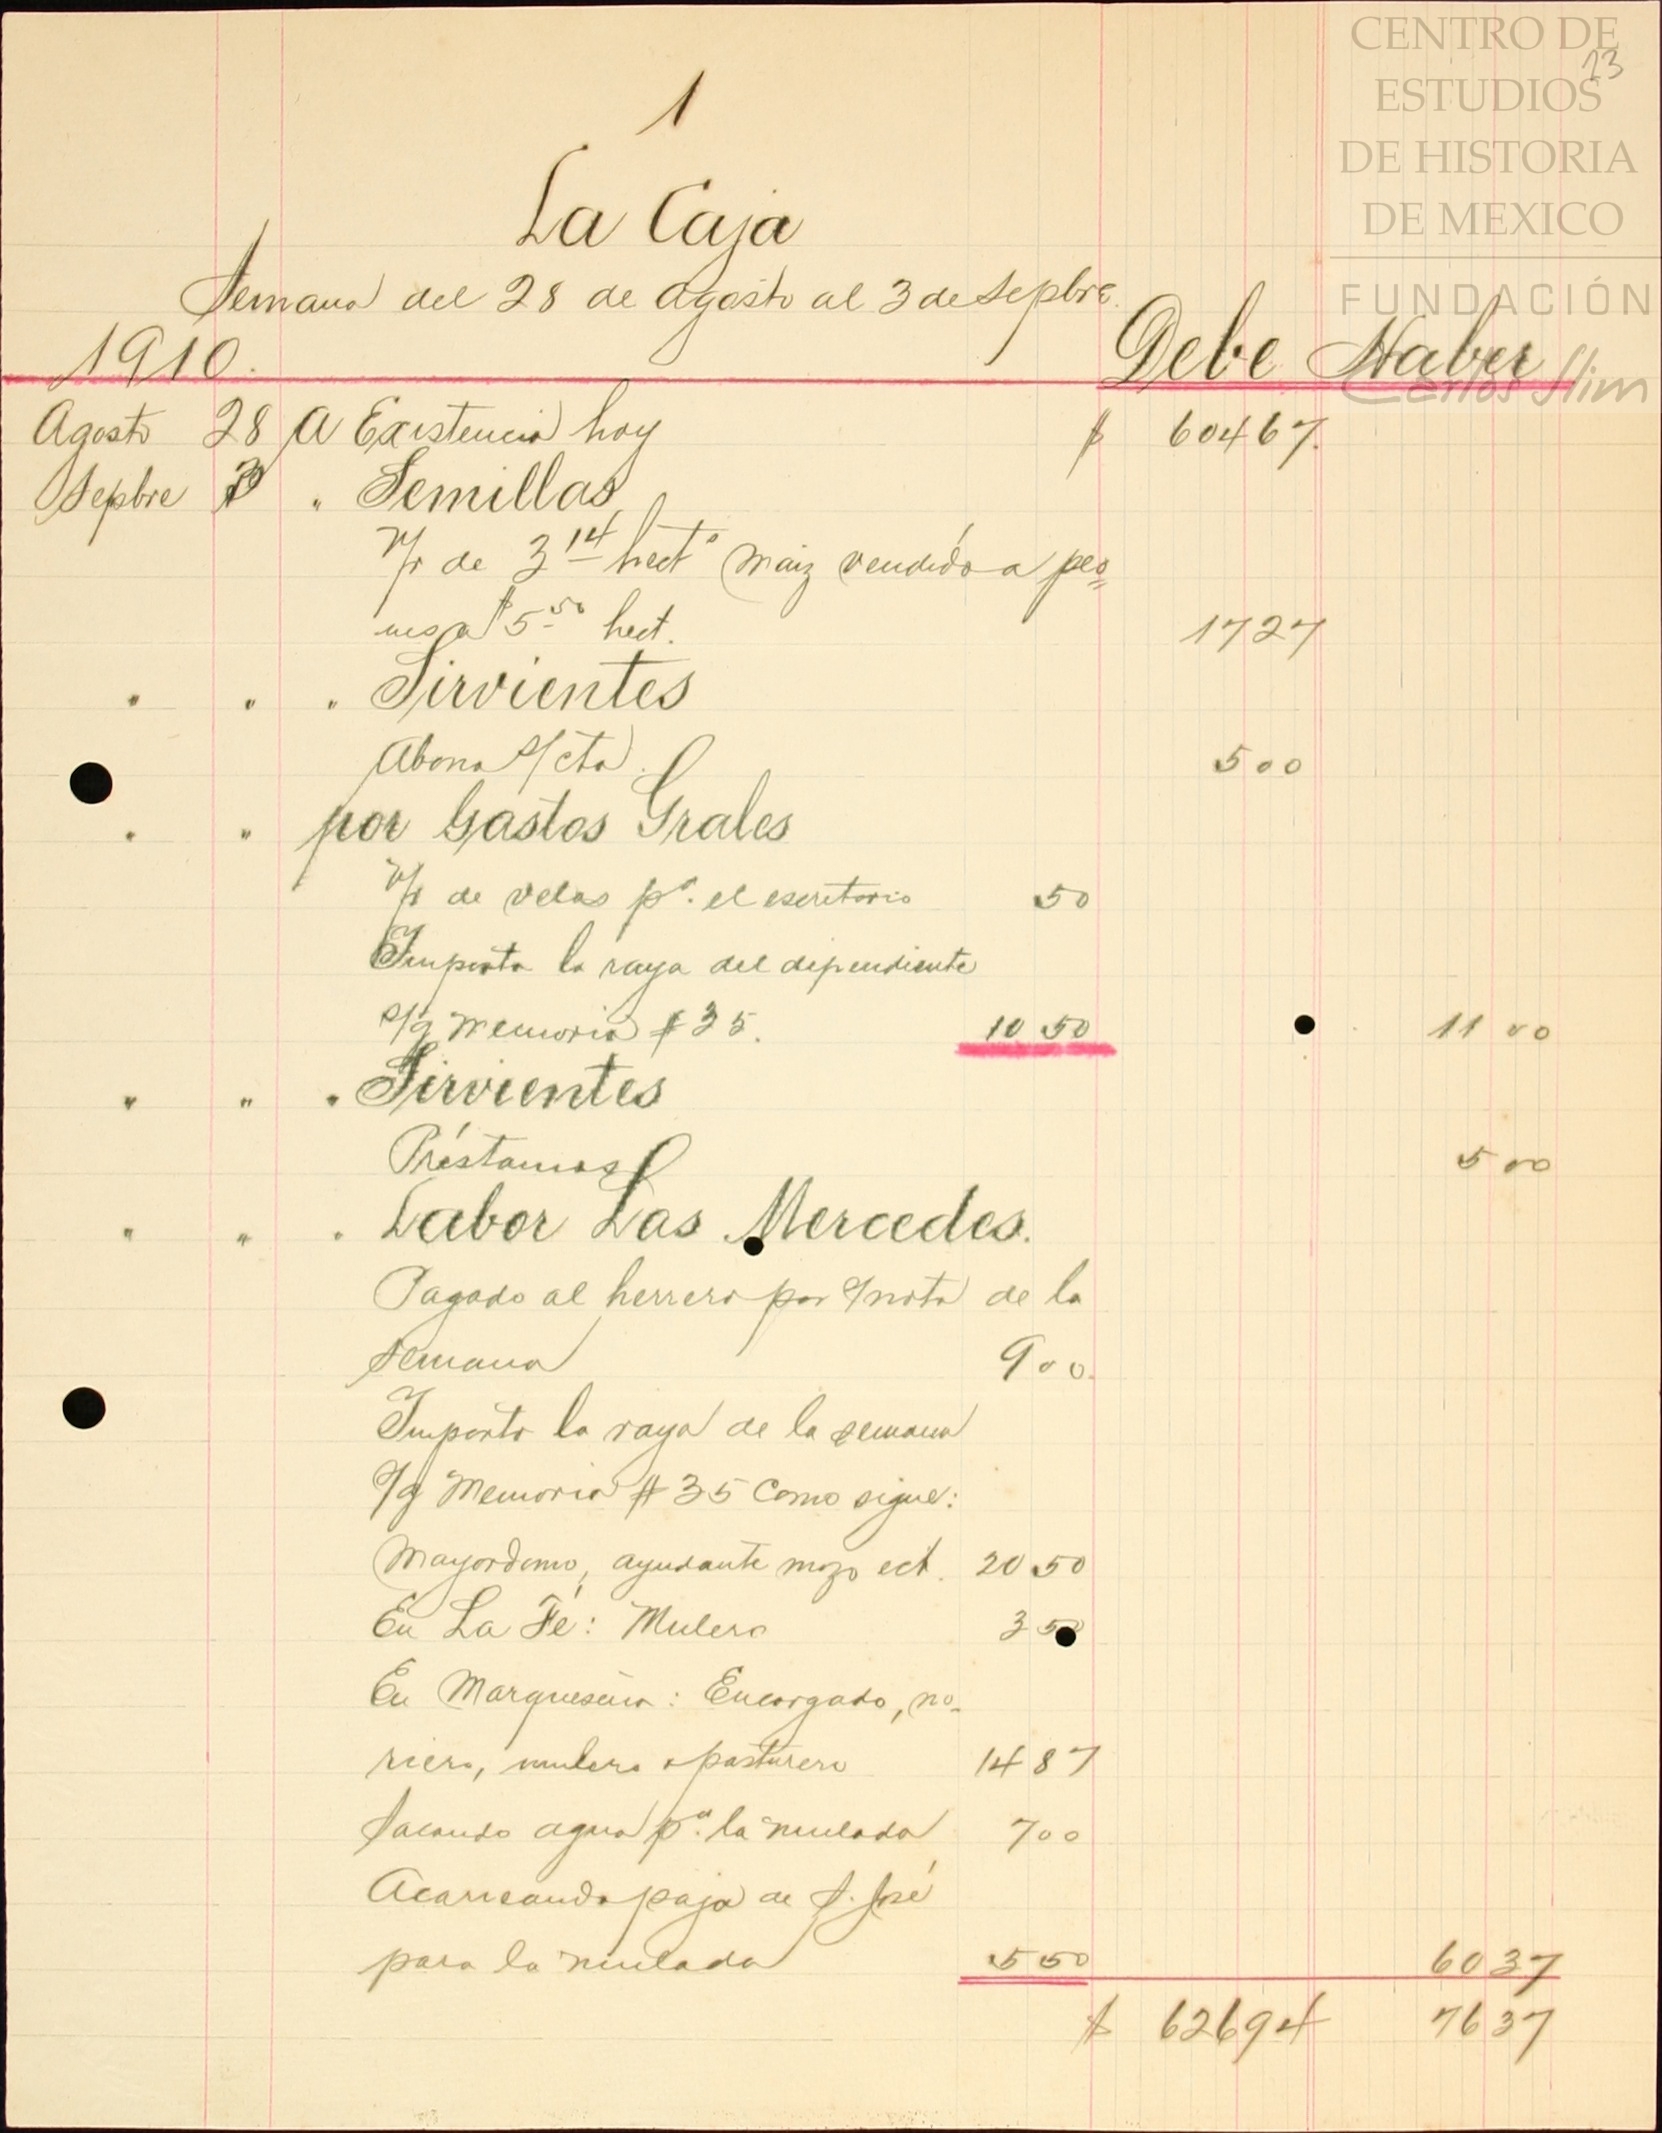 CENTRO DE
ESTUDIOS
DE HISTORIA
DE MEXICO
FUNDACIÓN
Carlos Slim
23
1
La Caja
Semana del 28 de agosto al 3 de Sepbre.
1910. Debe Haber
Agosto 28 A Existencia hoy $ 604 67.
Sepbre 3 " Semillas
V/r de 3 14 hect.º maiz vendido a peo=
nes a $5 50 hect. 17 27
" " " Sirvientes
Abono s/cta. 5 00
" " por Gastos Grales
V/r de velas pª. el escritorio 50
Importa la raya del dependiente
s/g memoria # 35. 10 50 11 00
" " " Sirvientes
Préstamos 5 00
" " " Labor Las Mercedes.
Pagado al herrero por s/nota de la
semana 9 00.
Importo la raya de la semana
s/g Memoria # 35 Como sigue:
Mayordomo, ayudante mozo ect. 20 50
En La Fé: Mulero 3 50
En Marqueseña: Encargado, no-
riero, mulero y pasturero 14 87
Sacando agua pª. la mulada 7 00
Acarreando paja de S. José
para la mulada 5 50 60 37
$ 626 94 76 37